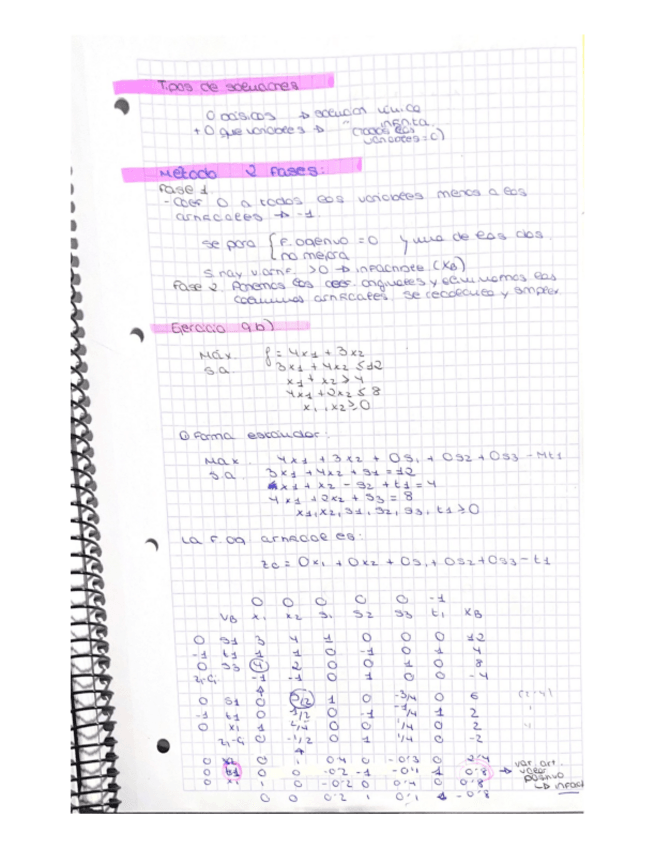 Tipos de soluciones
0 básicos → solución única
+ 0 que variables → " infinita
(todos los
variables = 0)
Método 2 Fases:
Fase 1
- Coef 0 a todos los variables menos a los
artificiales → -1
se para { F. objetivo = 0 y una de las dos
no mejora
Si hay v. artif. > 0 → infactible (XB)
Fase 2 Ponemos los coef. originales y eliminamos las
columnas artificiales. Se recalcula y
Ejercicio 9.b)
Máx. f = 4x1 + 3x2
s.a 3x1 + 4x2 ≤ 12
x1 + x2 ≥ 4
4x1 + 2x2 ≤ 8
x1, x2 ≥ 0
① Forma estándar:
Max. 4x1 + 3x2 + 0s1 + 0s2 + 0s3 - Mt1
s.a. 3x1 + 4x2 + s1 = 12
x1 + x2 - s2 + t1 = 4
4x1 + 2x2 + s3 = 8
x1, x2, s1, s2, s3, t1 ≥ 0
La F. obj artificial es:
zc = 0x1 + 0x2 + 0s1 + 0s2 + 0s3 - t1
0 0 0 0 0 -1
VB x1 x2 s1 s2 s3 t1 XB
0 s1 3 4 1 0 0 0 12
-1 t1 1 1 0 -1 0 1 4
0 s3 4 2 0 0 1 0 8
zj-cj -1 -1 0 1 0 0 -4
0 s1 0 5/2 1 0 -3/4 0 6
-1 t1 0 1/2 0 -1 -1/4 1 2
0 x1 1 2/4 0 0 1/4 0 2
zj-cj 0 -1/2 0 1 1/4 0 -2
0 x2 0 1 0'4 0 -0'3 0 2'4
0 t1 0 0 -0'2 -1 -0'1 1 0'8 → var. art.
valor
positivo
↳ infact
0 x1 1 0 -0'2 0 0'4 0 0'8
0 0 0'2 1 0'1 -0'8